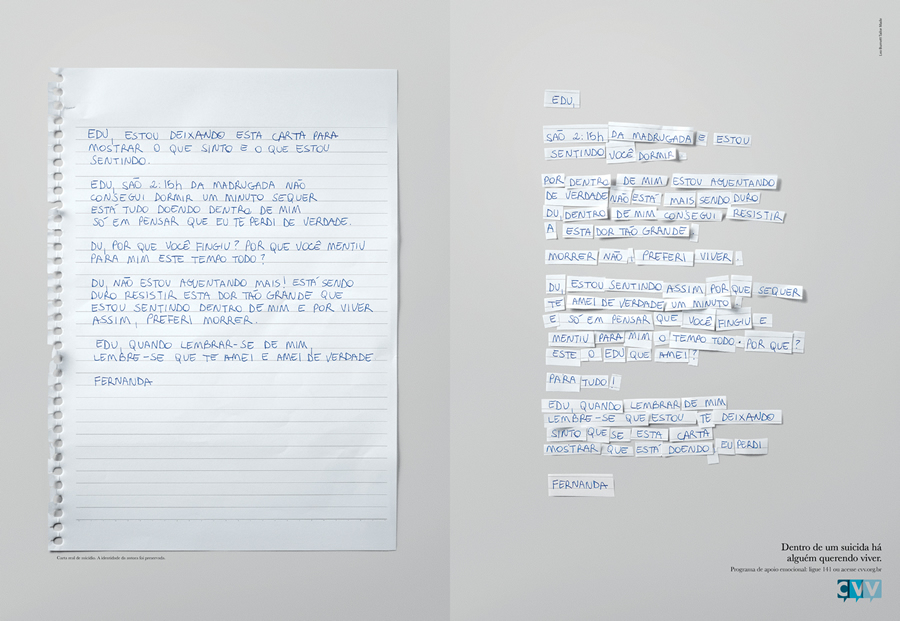 EDU, ESTOU DEIXANDO ESTA CARTA PARA
MOSTRAR O QUE SINTO E O QUE ESTOU
SENTINDO.
EDU, SÃO 2:15h DA MADRUGADA NÃO
CONSEGUI DORMIR UM MINUTO SEQUER
ESTÁ TUDO DOENDO DENTRO DE MIM
SÓ EM PENSAR QUE EU TE PERDI DE VERDADE.
DU, POR QUE VOCÊ FINGIU? POR QUE VOCÊ MENTIU
PARA MIM ESTE TEMPO TODO?
DU, NÃO ESTOU AGUENTANDO MAIS! ESTÁ SENDO
DURO RESISTIR ESTA DOR TÃO GRANDE QUE
ESTOU SENTINDO DENTRO DE MIM E POR VIVER
ASSIM, PREFERI MORRER.
EDU, QUANDO LEMBRAR-SE DE MIM,
LEMBRE-SE QUE TE AMEI E AMEI DE VERDADE
FERNANDA
Carta real de suicídio. A identidade da autora foi preservada.
EDU,
SÃO 2:15h DA MADRUGADA E ESTOU
SENTINDO VOCÊ DORMIR.
POR DENTRO DE MIM ESTOU AGUENTANDO
DE VERDADE NÃO ESTÁ MAIS SENDO DURO
DU, DENTRO DE MIM CONSEGUI RESISTIR
A ESTA DOR TÃO GRANDE
MORRER NÃO, PREFERI VIVER.
DU, ESTOU SENTINDO ASSIM, POR QUE SEQUER
TE AMEI DE VERDADE UM MINUTO
E SÓ EM PENSAR QUE VOCÊ FINGIU E
MENTIU PARA MIM O TEMPO TODO. POR QUE?
ESTE O EDU QUE AMEI?
PARA TUDO!
EDU, QUANDO LEMBRAR DE MIM
LEMBRE-SE QUE ESTOU TE DEIXANDO
SINTO QUE SE ESTA CARTA
MOSTRAR QUE ESTÁ DOENDO, EU PERDI.
FERNANDA
Dentro de um suicida há
alguém querendo viver.
Programa de apoio emocional: ligue 141 ou acesse cvv.org.br
CVV
Leo Burnett Tailor Made